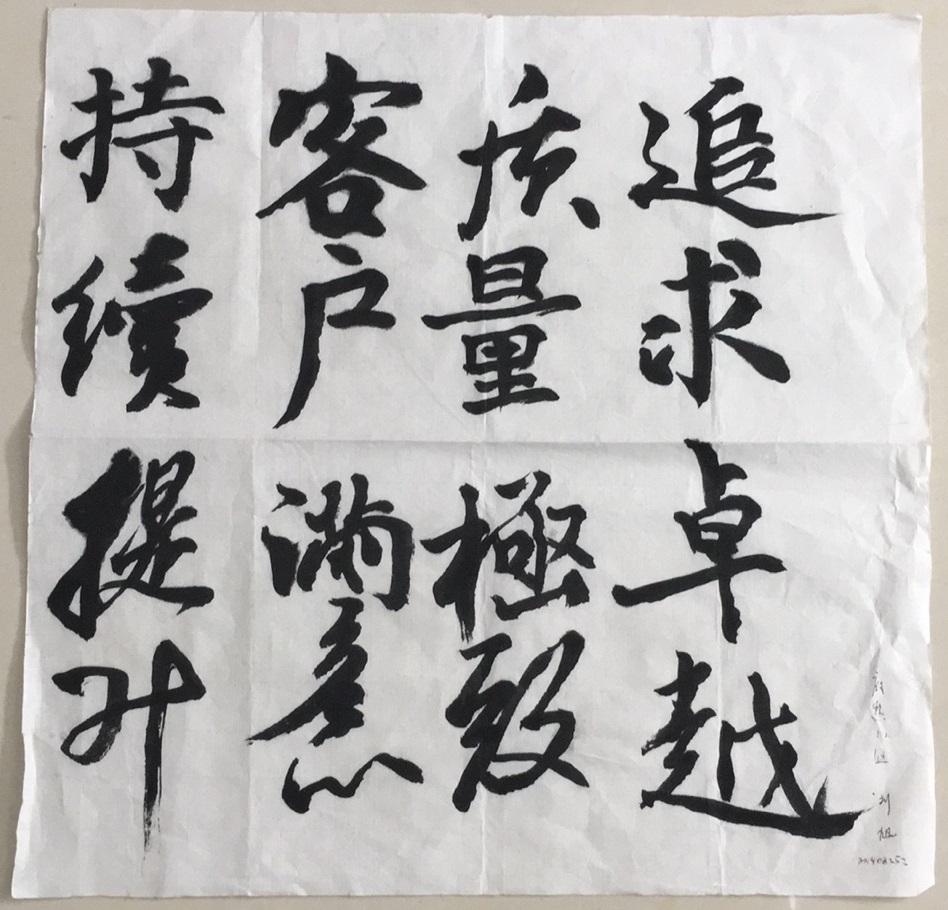 追求卓越
质量極致
客户滿意
持續提升
刘旭